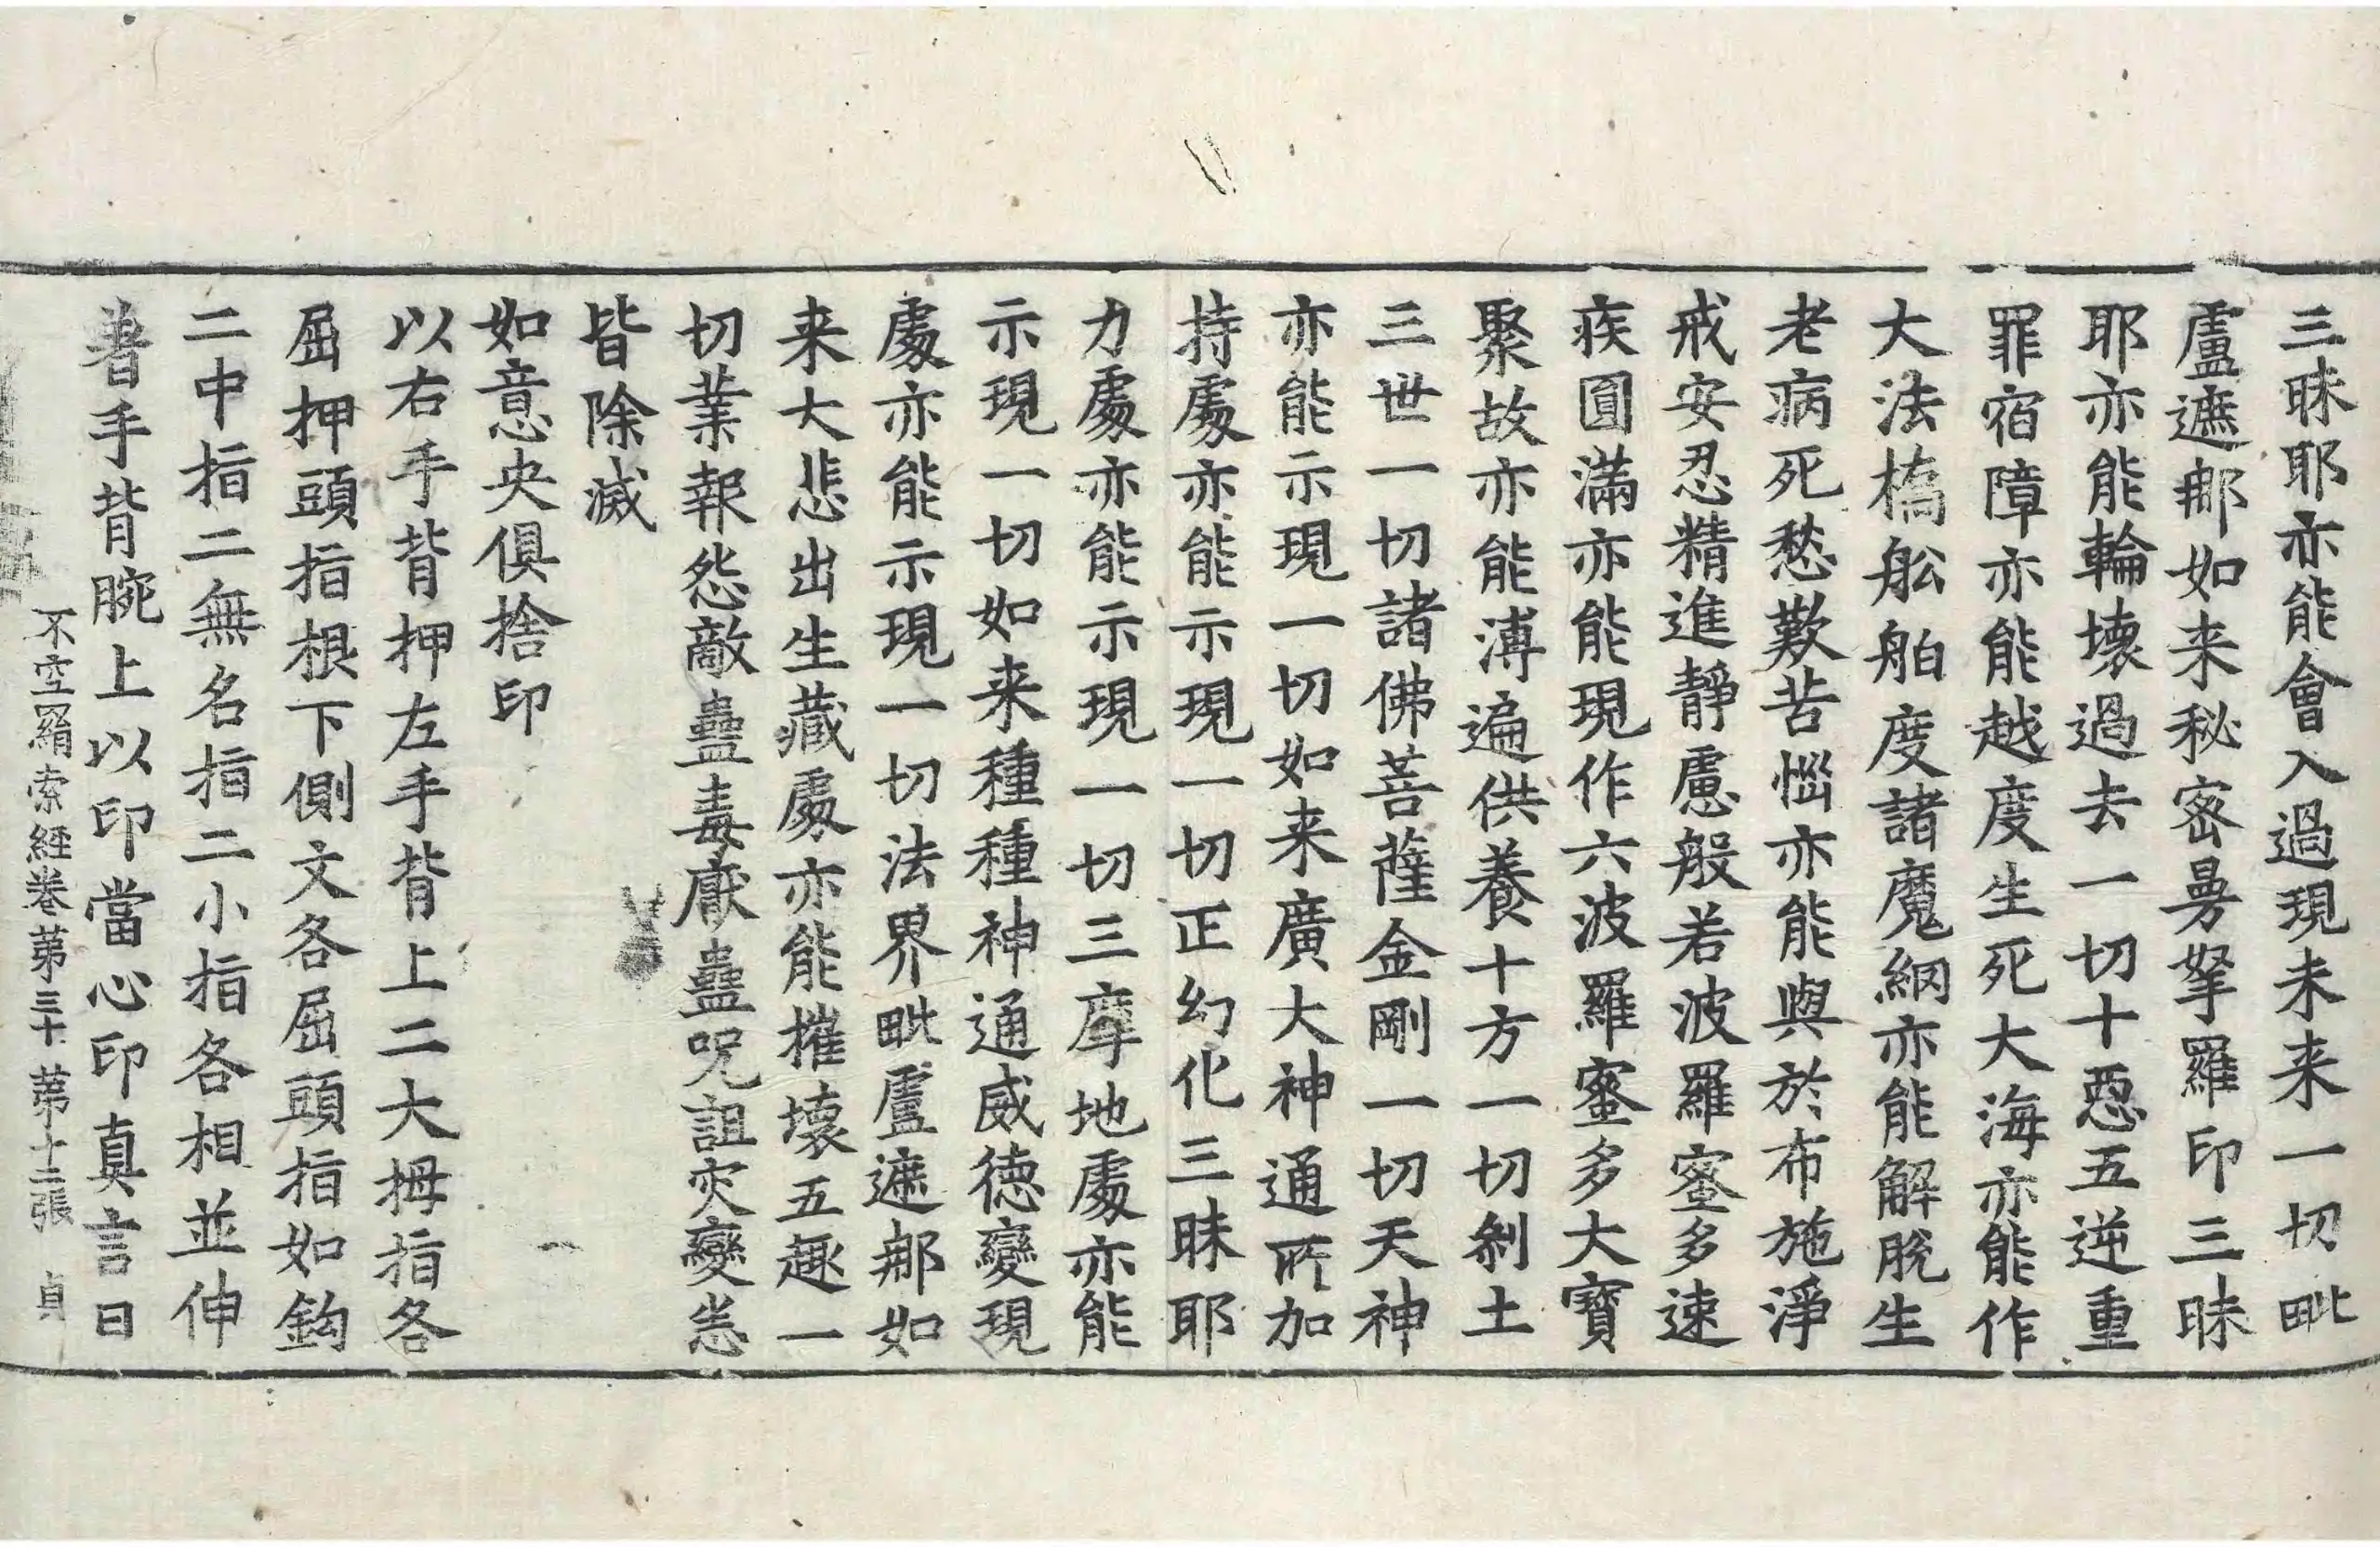 三昧耶亦能會入過現未来一切毗
盧遮那如来秘密曼拏羅印三昧
耶亦能輪壞過去一切十惡五逆重
罪宿障亦能越度生死大海亦能作
大法橋舩舶度諸魔網亦能解脫生
老病死愁歎苦惱亦能與於布施淨
戒安忍精進靜慮般若波羅蜜多速
疾圓滿亦能現作六波羅蜜多大寶
聚故亦能溥遍供養十方一切剎土
三世一切諸佛菩薩金剛一切天神
亦能示現一切如来廣大神通所加
持處亦能示現一切正幻化三昧耶
力處亦能示現一切三摩地處亦能
示現一切如来種種神通威德變現
處亦能示現一切法界毗盧遮那如
来大悲出生藏處亦能摧壞五趣一
切業報怨敵蠱毒厭蠱呪詛灾變恙
皆除滅
如意央俱捨印
以右手背押左手背上二大拇指各
屈押頭指根下側文各屈頭指如鈎
二中指二無名指二小指各相並伸
著手背腕上以印當心印真言曰
不空羂索經卷苐三十 苐十二張 貞